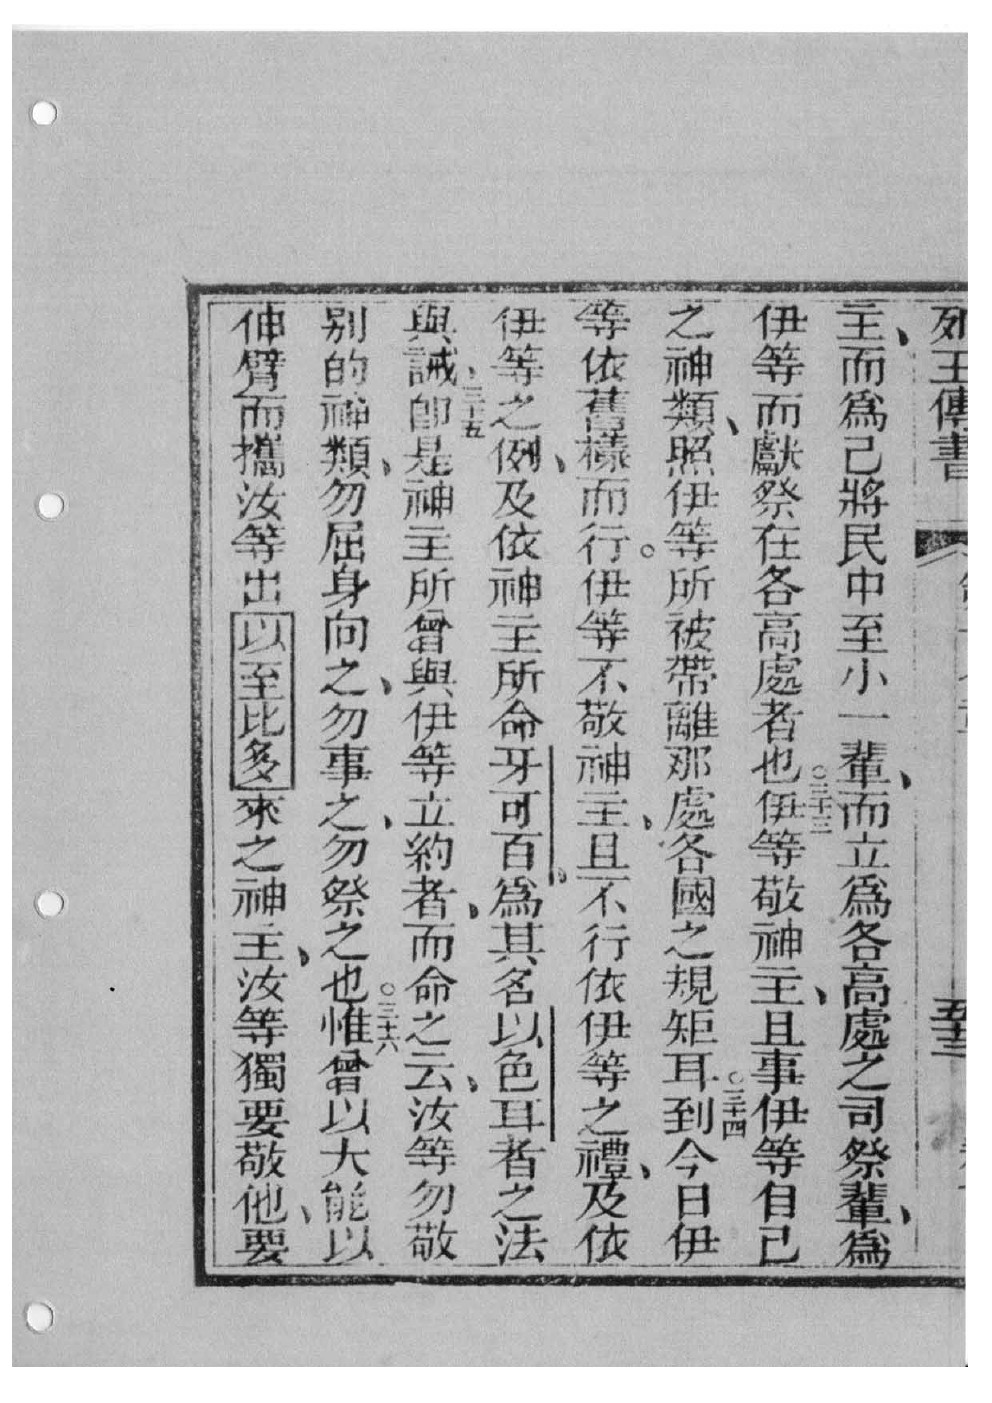 列王傳書
五十三
主、而爲己將民中至小一輩、而立爲各高處之司祭輩、爲
伊等而獻祭在各高處者也○三十三伊等敬神主、且事伊等自己
之神類、照伊等所被帶離那處各國之規矩耳○三十四到今日伊
等依舊樣而行。伊等不敬神主、且不行依伊等之禮、及依
伊等之例、及依神主所命牙可百、爲其名以色耳者之法
與誡、三十五卽是神主所曾與伊等立約者、而命之云、汝等勿敬
别的神類、勿屈身向之、勿事之、勿祭之也○三十六惟曾以大能以
伸臂而攜汝等出以至比多來之神主、汝等獨要敬他、要